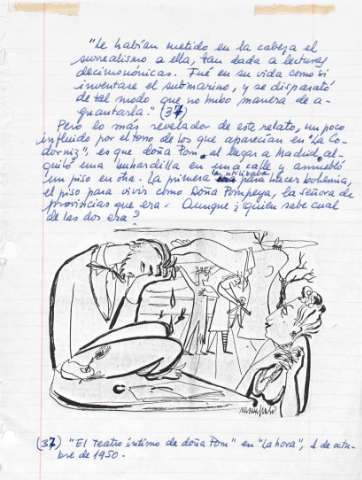 "Le habían metido en la cabeza el
surrealismo a ella, tan dada a lecturas
decimonónicas. Fué en su vida como si
inventare el submarino, y se disparató
de tal modo que no hubo manera de a-
guantarla." (37)
Pero lo más revelador de este relato, un poco
influido por el tono de los que aparecían en "La Co-
dorniz", es que doña Pom, al llegar a Madrid, al-
quiló una buhardilla en una calle y amuebló
un piso en otra. La primera la utilizaba para hacer bohemia,
el piso para vivir como Doña Pompeya, la señora de
provincias que era. Aunque ¿quien sabe cual
de las dos era?
(37) "El teatro íntimo de doña Pom" en "La hora", 1 de octu-
bre de 1950.-